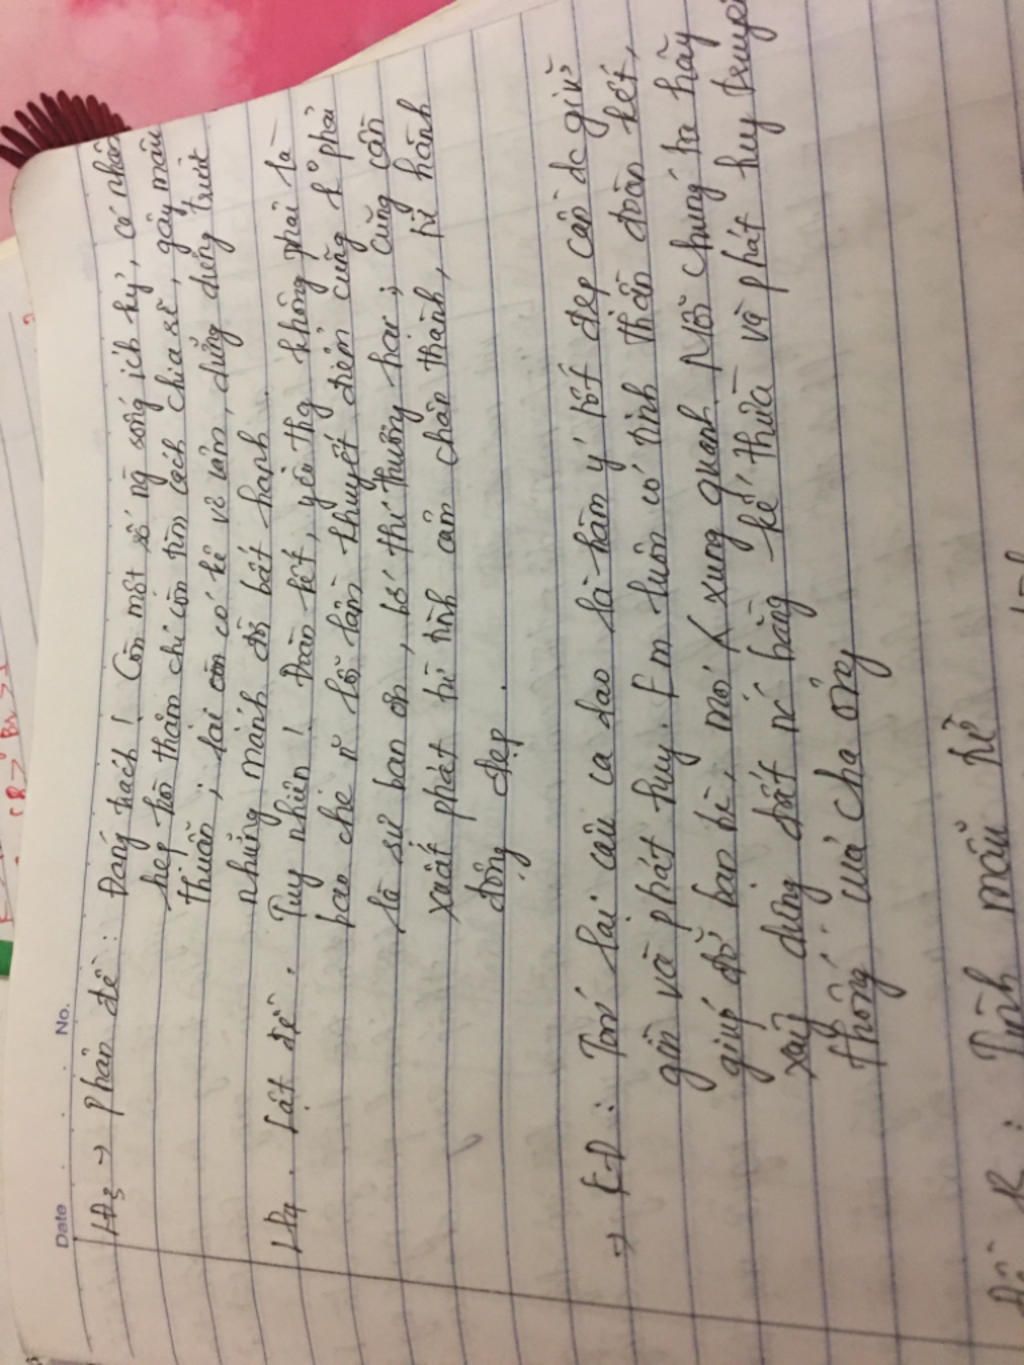 Date No.
LĐ3 → Phản đề: Đáng trách! Còn một số ng sống ích kỷ, có nhân
hẹp hòi thậm chí còn tìm cách chia rẽ, gây mâu
thuẫn; lại còn có kẻ vô cảm, dửng dưng trước
những mảnh đời bất hạnh
LĐ4. Lật đề. Tuy nhiên! Đoàn kết, yêu thg không phải là
bao che lỗi lầm khuyết điểm cũng k phải
là sự ban ơn, bố thí thương hại; cũng cần
xuất phát từ tình cảm chân thành, từ hành
động đẹp.
→ K-Đ: Tóm lại câu ca dao là hàm ý tốt đẹp cần đc giữ
gìn và phát huy. Em luôn có tinh thần đoàn kết,
giúp đỡ bạn bè, mọi xung quanh. Nói chung ta hãy
xây dựng đất nc bằng kế thừa và phát huy truyền
thống của cha ông
Đề : Tình mẫu tử